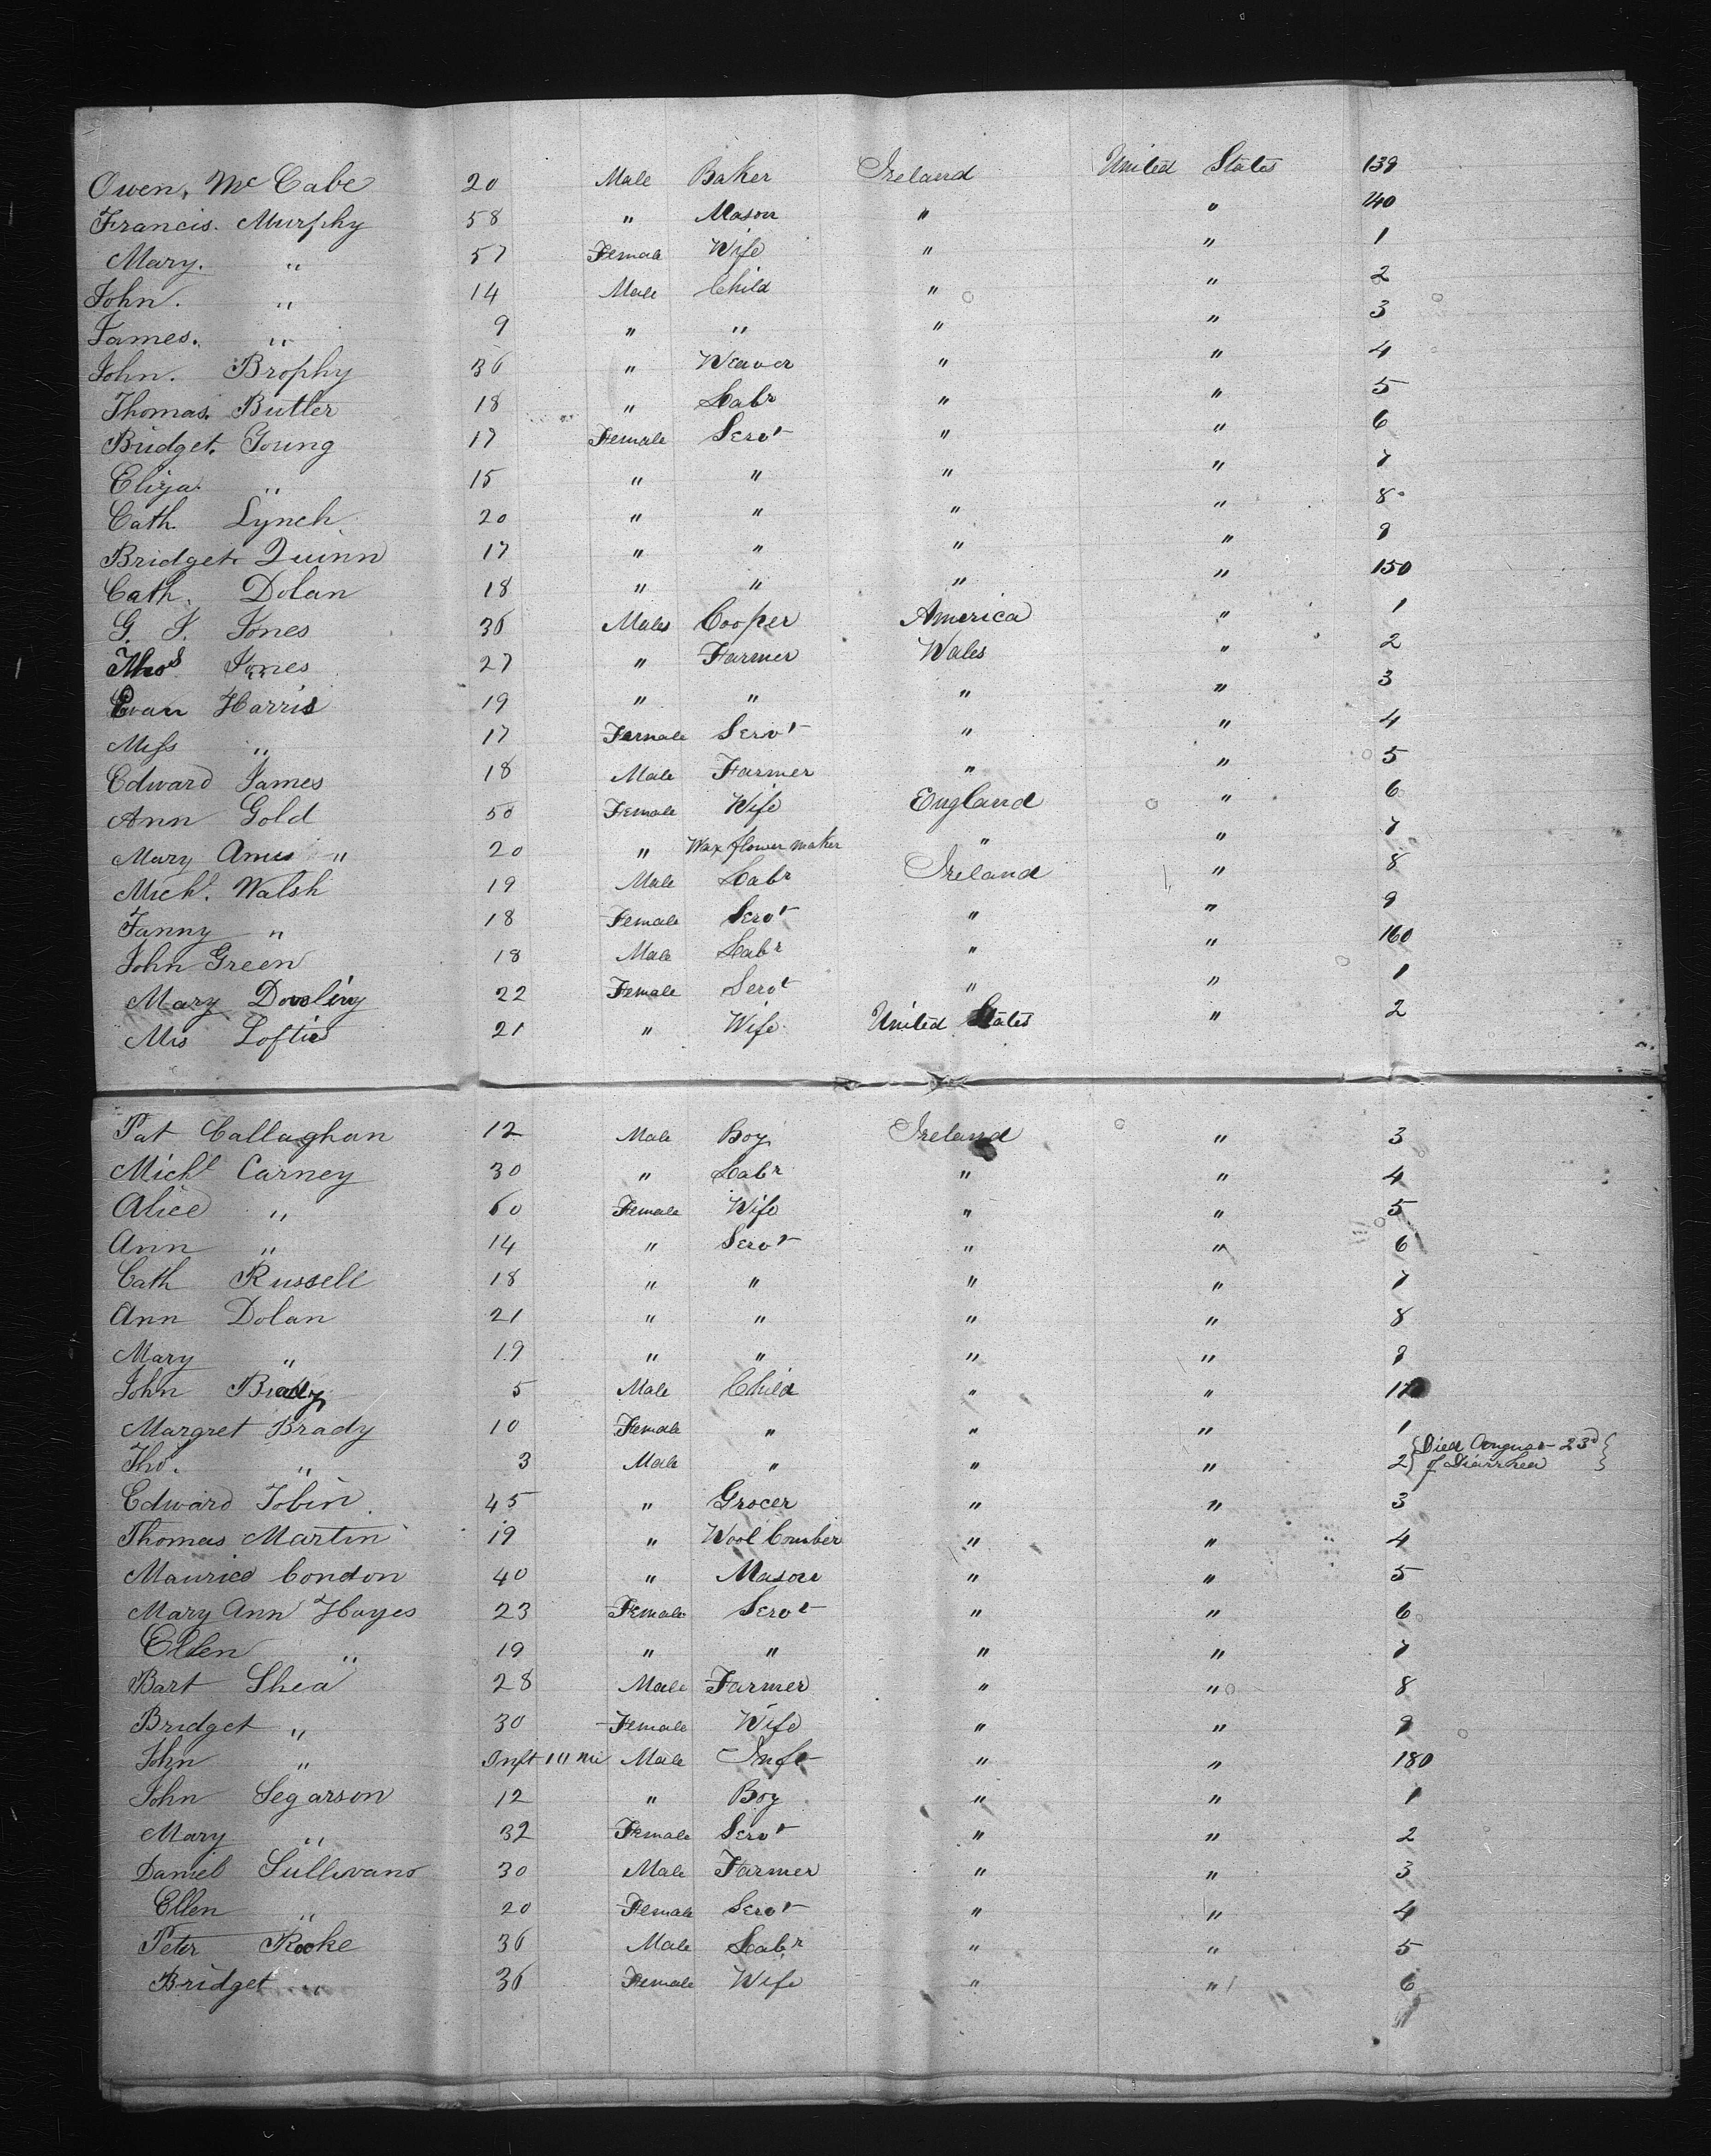 Owen. Mc Cabe 20 Male Baker Ireland United States 139
Francis. Murphy 58 " Mason " " 140
Mary. " 57 Female Wife " " 1
John. " 14 Male Child " " 2
James. " 9 " " " " 3
John. Brophy 36 " Weaver " " 4
Thomas. Butler 18 " Labr " " 5
Bridget. Goung 17 Female Servt " " 6
Eliza. " 15 " " " " 7
Cath. Lynch 20 " " " " 8
Bridget. Quinn 17 " " " " 9
Cath. Dolan 18 " " " " 150
G. J. Jones 36 Males Cooper America " 1
Thos Jones 27 " Farmer Wales " 2
Evan Harris 19 " " " " 3
Miss " 17 Female Servt " " 4
Edward James 18 Male Farmer " " 5
Ann Gold 50 Female Wife England " 6
Mary Ames " 20 " Wax flower maker " " 7
Michl. Walsh 19 Male Labr Ireland " 8
Fanny " 18 Female Servt " " 9
John Green 18 Male Labr " " 160
Mary Dowling 22 Female Servt " " 1
Mrs Loftis 21 " Wife United States " 2
Pat Callaghan 12 Male Boy Ireland " 3
Michl Carney 30 " Labr " " 4
Alice " 60 Female Wife " " 5
Ann " 14 " Servt " " 6
Cath Russell 18 " " " " 7
Ann Dolan 21 " " " " 8
Mary " 19 " " " " 9
John Brady 5 Male Child " " 17
Margret Brady 10 Female " " " 1
Tho. " 3 Male " " " 2 {Died August 23d of Diarrhea}
Edward Tobin 45 " Grocer " " 3
Thomas Martin 19 " Wool Comber " " 4
Maurice Condon 40 " Mason " " 5
Mary Ann Hayes 23 Female Servt " " 6
Ellen " 19 " " " " 7
Bart Shea 28 Male Farmer " " 8
Bridget " 30 Female Wife " " 9
John " Inft 10 Male Inft " " 180
John Segarson 12 " Boy " " 1
Mary " 32 Female Servt " " 2
Daniel Sullivano 30 Male Farmer " " 3
Ellen " 20 Female Servt " " 4
Peter Rooke 36 Male Labr " " 5
Bridget " 36 Female Wife " " 6